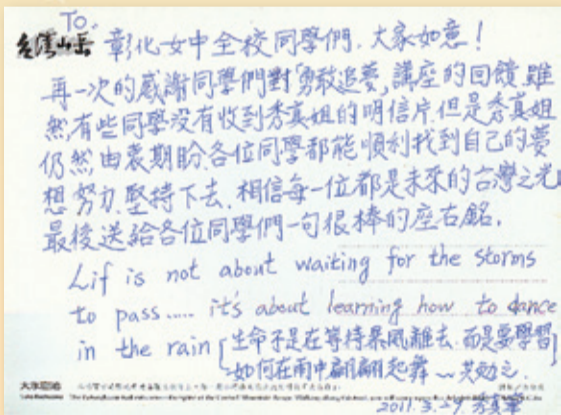 To.
台灣山岳 彰化女中全校同學們，大家如意！
再一次的感謝同學們對「勇敢追夢」講座的回饋雖
然有些同學沒有收到秀真姐的明信片，但是秀真姐
仍然由衷期盼各位同學都能順利找到自己的夢
想努力堅持下去，相信每一位都是未來的台灣之光
最後送給各位同學們一句很棒的座右銘，
Lif is not about waiting for the storms
to pass..... it's about learning how to dance
in the rain [生命不是在等待暴風離去，而是要學習
如何在雨中翩翩起舞～共勉之.
大水窟池
2011.3.